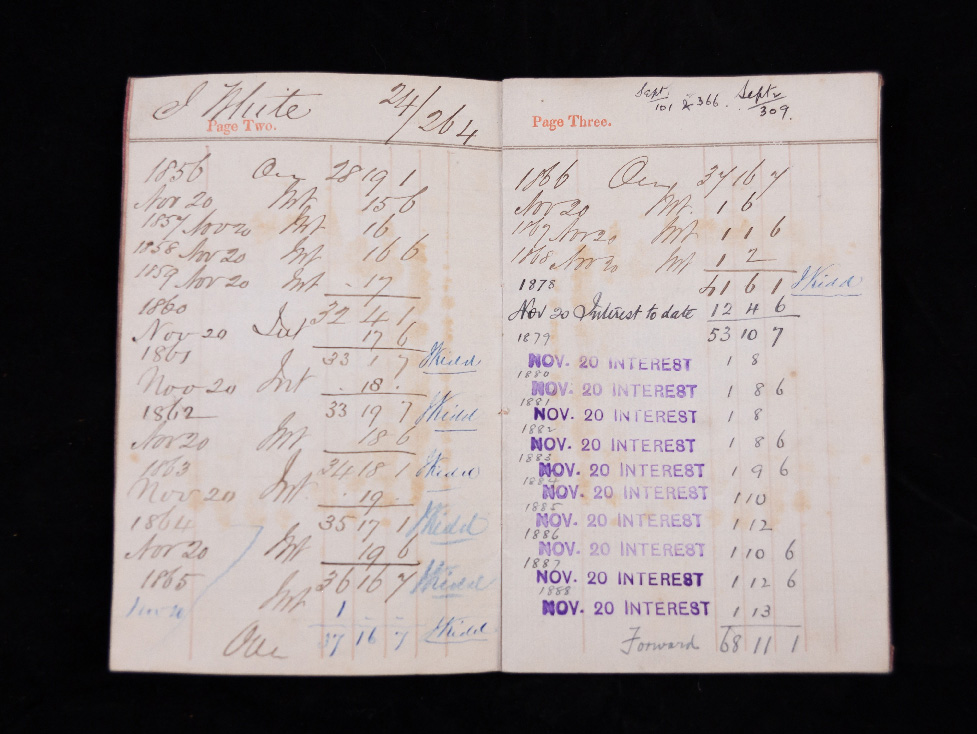 J White 24/264
Page Two.
1856 Over 28 19 1
Nov 20 Int 15 6
1857 Nov 20 Int 16
1858 Nov 20 Int 16 6
1859 Nov 20 Int . 17
1860 32 4 1
Nov 20 Int 17 6
1861 33 1 7 JKidd
Nov 20 Int . 18 .
1862 33 19 7 JKidd
Nov 20 Int 18 6
1863 34 18 1 JKidd
Nov 20 Int . 19 .
1864 35 17 1 JKidd
Nov 20 Int 19 6
1865 36 16 7 JKidd
Nov 20 Int 1
Over 37 16 7 JKidd
Sept 101 & 366. Sept 309.
Page Three.
1866 Over 37 16 7
Nov 20 Int. 1 6
1867 Nov 20 Int 1 1 6
1868 Nov 20 Int 1 2
1878 41 6 1 JKidd
Nov 20 Interest to date 12 4 6
1879 53 10 7
NOV. 20 INTEREST 1 8
1880
NOV. 20 INTEREST 1 8 6
1881
NOV. 20 INTEREST 1 8
1882
NOV. 20 INTEREST 1 8 6
1883
NOV. 20 INTEREST 1 9 6
1884
NOV. 20 INTEREST 1 10
1885
NOV. 20 INTEREST 1 12
1886
NOV. 20 INTEREST 1 10 6
1887
NOV. 20 INTEREST 1 12 6
1888
NOV. 20 INTEREST 1 13
Forward 68 11 1